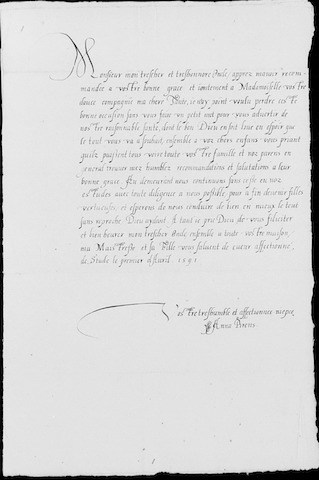 Monsieur mon trescher et treshonnoré Oncle, apprez m'avoir recom-
mandée a vostre bonne grace et contenant a Mademoiselle vostre
douce compagnie ma chere Tante, ie n'ay point voulu perdre ceste
bonne occasion sans vous faire un petit mot pour vous advertir de
nostre raisonnable santé, dont le bon Dieu en soit loué en espoir que
le tout vous va a souhait, ensemble a voz chers enfans vous priant
qu'ilz puissent tous voire toute vostre famille et noz parens en
general trouver mes humbles recommandations et salutations a leur
bonne grace. Au demeurant nous continuons sans cesse en noz
estudes avec toute diligence a nous possible, pour a fin devenir filles
vertueuses et esperons de nous conduire de bien en mieux le tout
sans reproche Dieu aydant. A tant ie prie Dieu de vous feliciter
et bien heurer mon trescher Oncle ensemble a toute vostre maison,
ma Maistresse et sa fille vous saluent de cueur affectionné,
de Stade le premier d'Avril. 1591
Vostre tres humble et affectionnée niepce
Anna